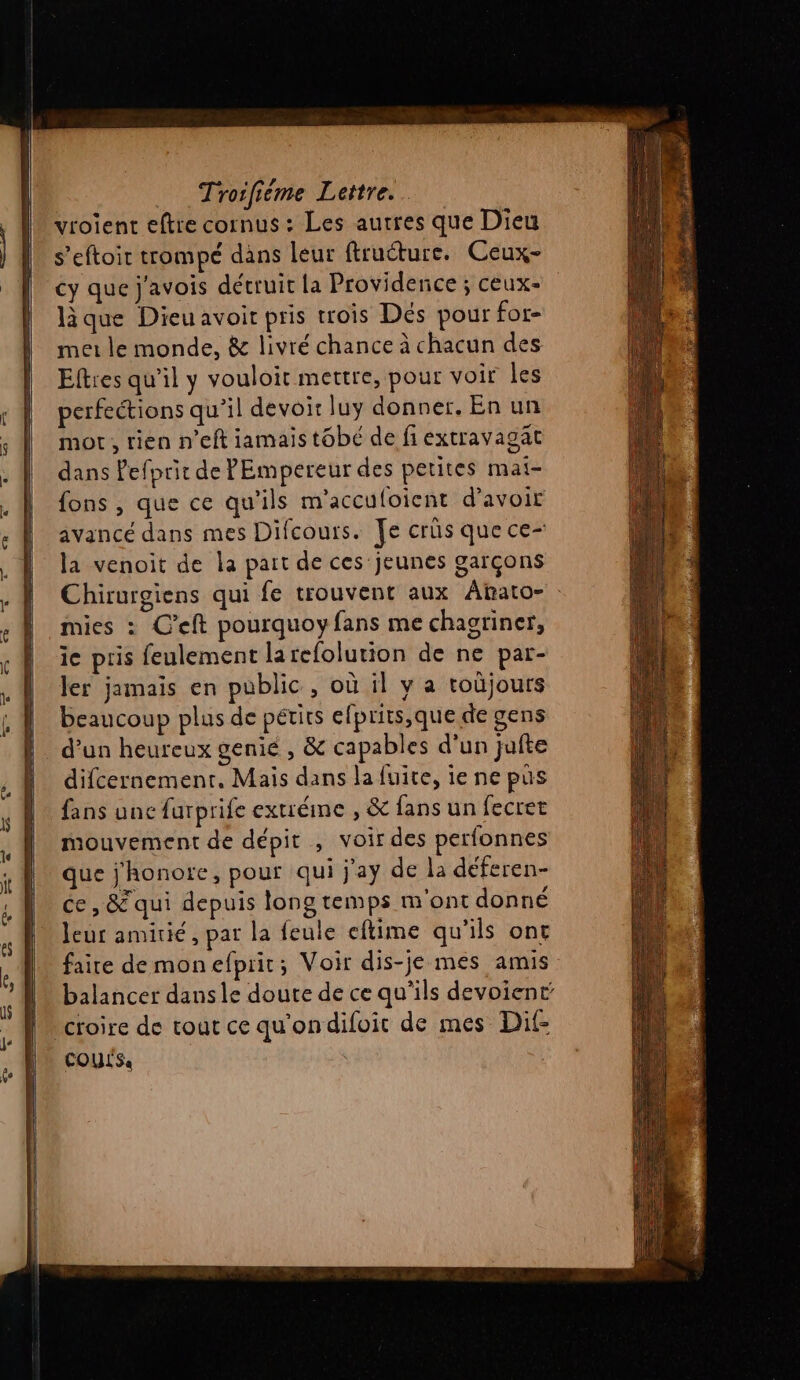 Troiſiéme Lettre.
vroient eſtre cornus : Les autres que Dieu
s'eſtoit trompé dans leur ſtructure. Ceux-
cy que j'avois détruit la Providence ; ceux-
là que Dieu avoit pris trois Dés pour for-
mer le monde, & livré chance à chacun des
Eſtres qu'il y vouloit mettre, pour voir les
perfections qu'il devoit luy donner. En un
mot, rien n'eſt iamais tõbé de ſi extravagãt
dans l'eſprit de l'Empereur des petites mai-
ſons, que ce qu'ils m'accuſoient d'avoir
avancé dans mes Diſcours. Je crûs que ce-
la venoit de la part de ces jeunes garçons
Chirurgiens qui ſe trouvent aux Anato-
mies : C'eſt pourquoy ſans me chagriner,
ie pris ſeulement la reſolution de ne par-
ler jamais en public, où il y a toûjours
beaucoup plus de pétits eſprits, que de gens
d'un heureux genié, & capables d'un juſte
diſcernement. Mais dans la ſuite, ie ne pûs
ſans une ſurpriſe extréme, & ſans un ſecret
mouvement de dépit, voir des perſonnes
que j'honore, pour qui j'ay de la déferen-
ce, & qui depuis long temps m'ont donné
leur amitié, par la ſeule eſtime qu'ils ont
faite de mon eſprit ; Voir dis-je mes amis
balancer dans le doute de ce qu'ils devoient
croire de tout ce qu'on diſoit de mes Diſ-
cours.